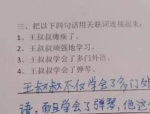 三、把以下四句话用关联词连接起来：
1、王叔叔瘫痪了。
2、王叔叔顽强地学习。
3、王叔叔学会了多门外语。
4、王叔叔学会了弹琴。
王叔叔不仅学会了多门外
语，而且学会了弹琴，他这